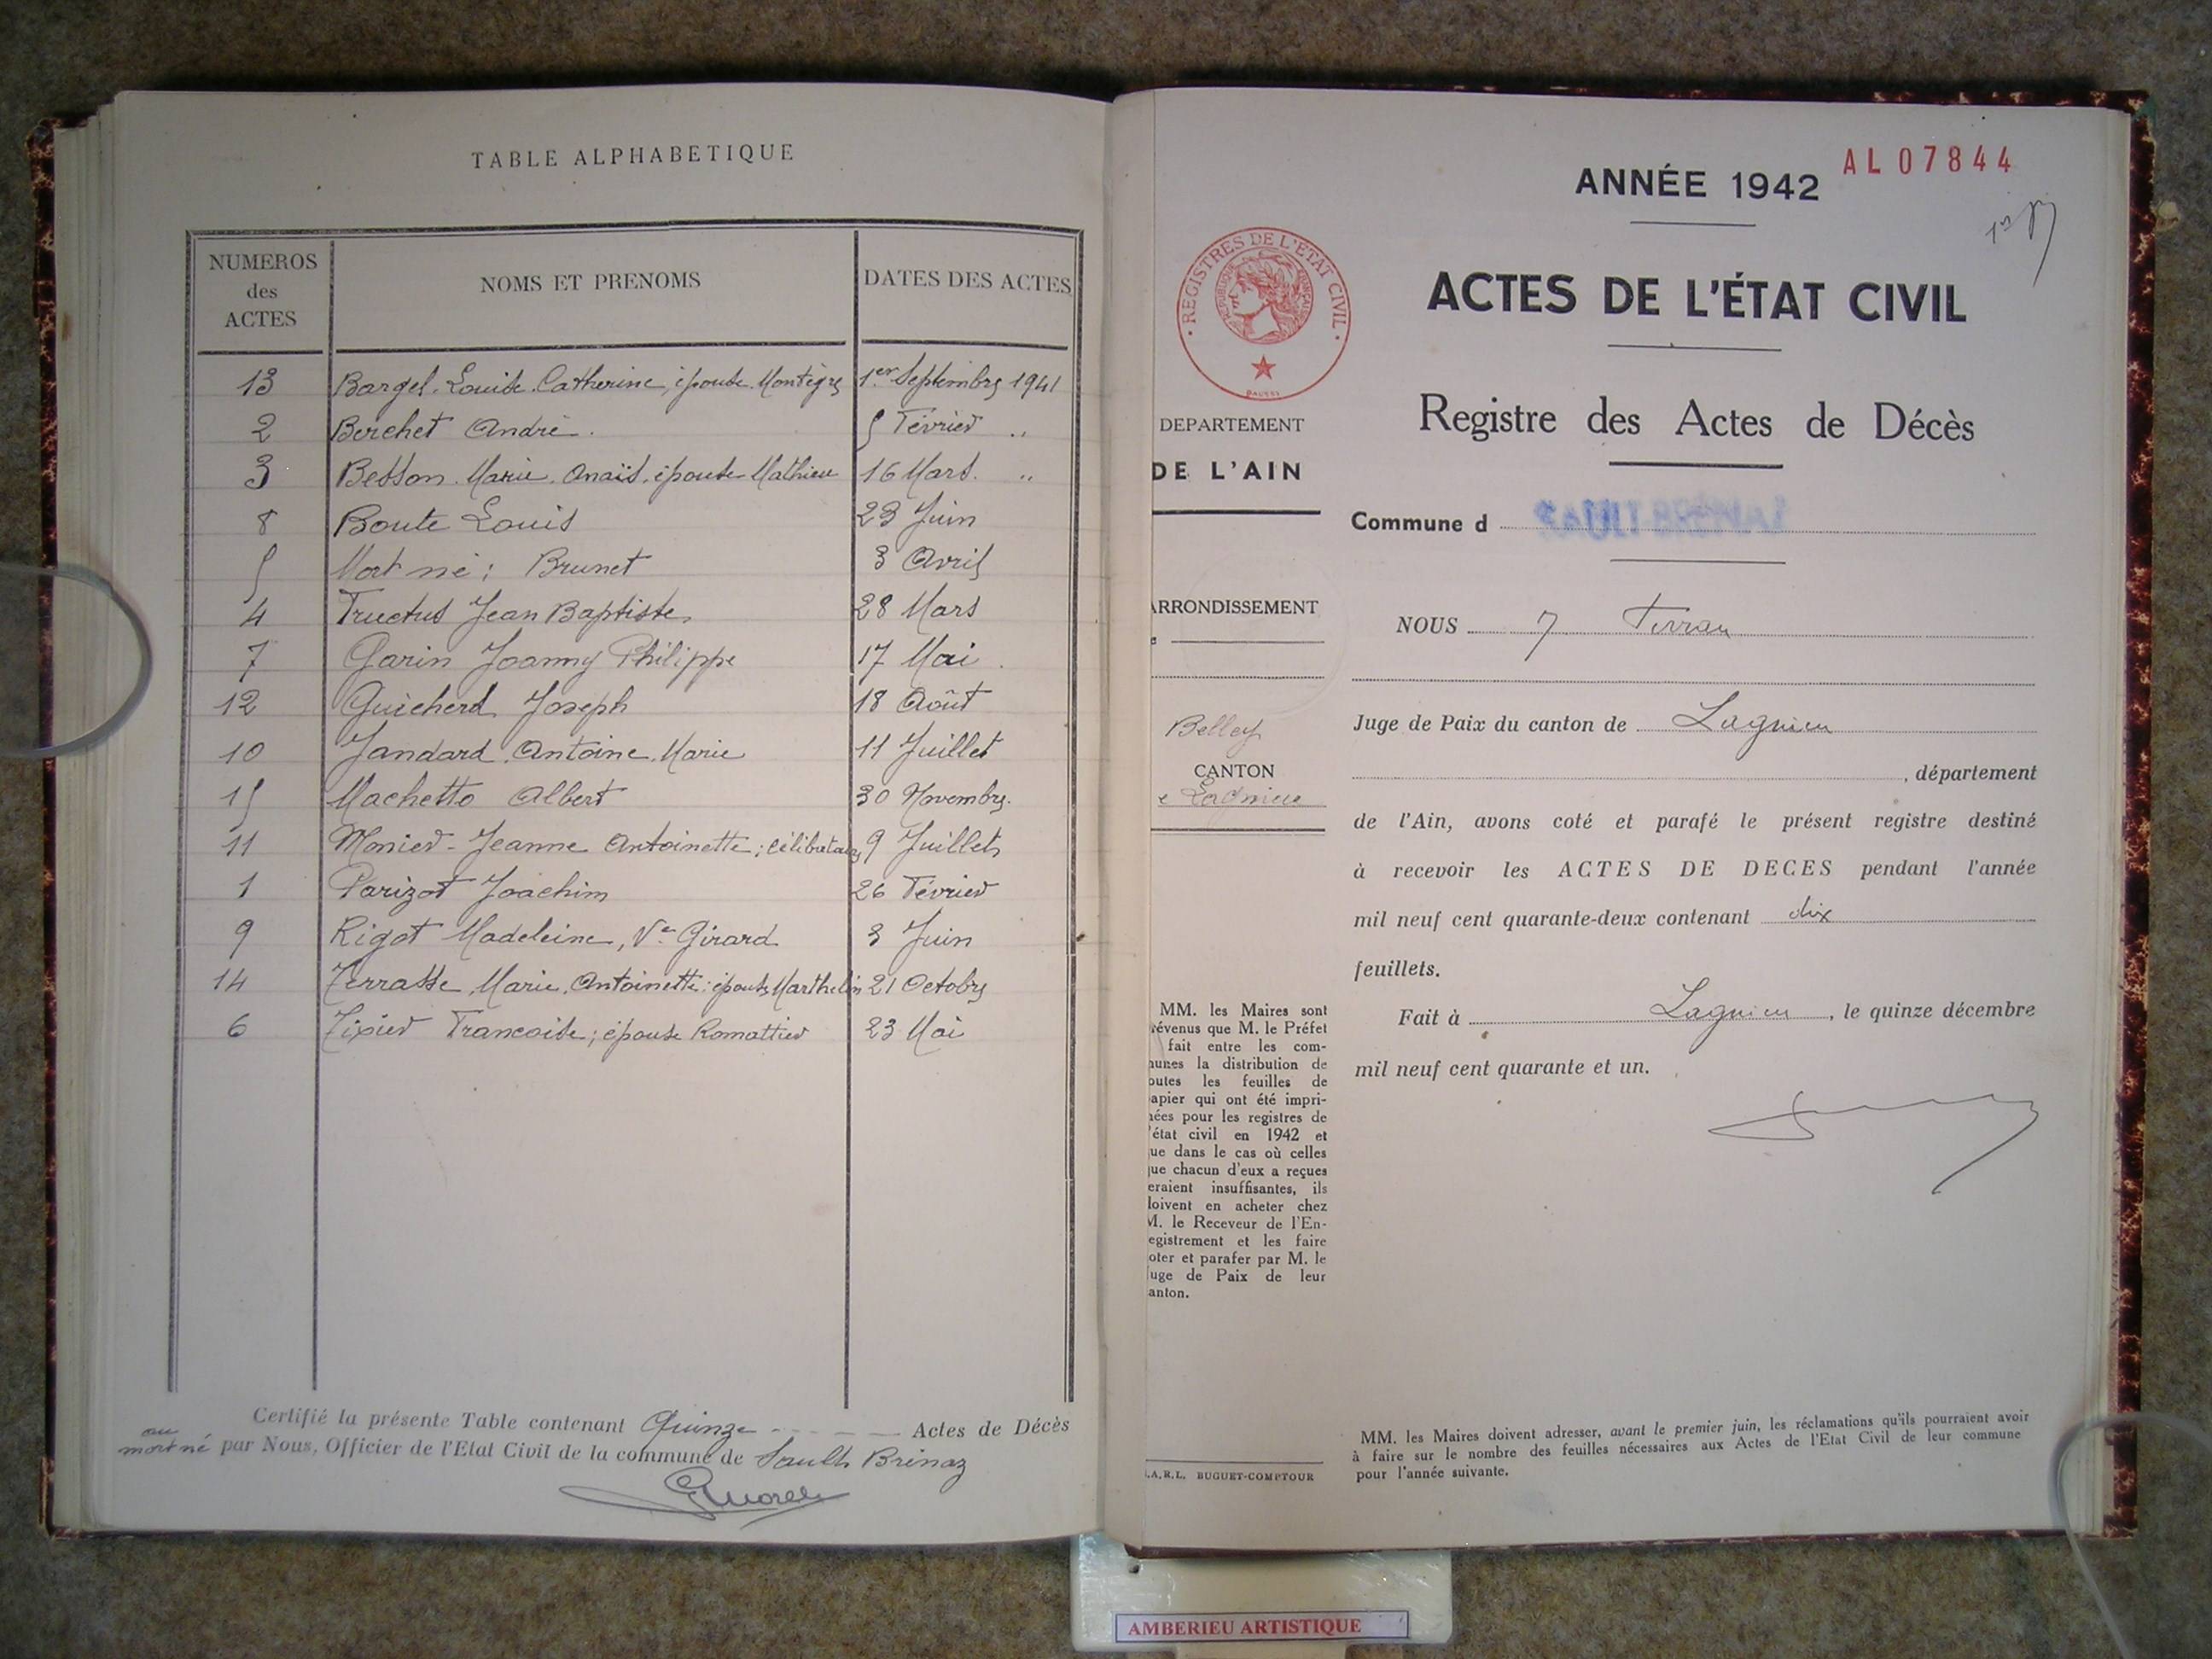 TABLE ALPHABETIQUE
NUMEROS des ACTES NOMS ET PRENOMS DATES DES ACTES
13 Bargel Louise Catherine, épouse Montègre 1er Septembre 1941
2 Berchet André. 5 Février "
3 Besson Marie Anaïs, épouse Mathieu 16 Mars "
8 Boute Louis 23 Juin
5 Mort né : Brunet 3 Avril
4 Fructus Jean Baptiste 28 Mars
7 Garin Joanny Philippe 17 Mai
12 Guicherd Joseph 18 Août
10 Jandard Antoine Marie 11 Juillet
15 Machetto Albert 30 Novembre
11 Monier Jeanne Antoinette ; célibataire 9 Juillet
1 Parizot Joachim 26 Février
9 Rigot Madeleine, Ve Girard 3 Juin
14 Terrasse Marie Antoinette : épouse Marthelin 21 Octobre
6 Tixier Francoise ; épouse Romattier 23 Mai
Certifié la présente Table contenant Quinze Actes de Décès
au mort né par Nous, Officier de l'Etat Civil de la commune de Sault Brénaz
ANNÉE 1942
AL 07844
REGISTRES DE L'ETAT CIVIL
REPUBLIQUE FRANÇAISE
ACTES DE L'ÉTAT CIVIL
Registre des Actes de Décès
DEPARTEMENT
DE L'AIN
Commune d SAULT BRÉNAZ
ARRONDISSEMENT
Belley
CANTON
e Lagnieu
NOUS
Juge de Paix du canton de Lagnieu
, département
de l'Ain, avons coté et parafé le présent registre destiné
à recevoir les ACTES DE DECES pendant l'année
mil neuf cent quarante-deux contenant dix
feuillets.
Fait à Lagnieu, le quinze décembre
mil neuf cent quarante et un.
MM. les Maires sont
révenus que M. le Préfet
fait entre les com-
nunes la distribution de
outes les feuilles de
apier qui ont été impri-
nées pour les registres de
'état civil en 1942 et
ue dans le cas où celles
que chacun d'eux a reçues
eraient insuffisantes, ils
doivent en acheter chez
M. le Receveur de l'En-
egistrement et les faire
oter et parafer par M. le
Juge de Paix de leur
anton.
.A.R.L. BUGUET-COMPTOUR
MM. les Maires doivent adresser, avant le premier juin, les réclamations qu'ils pourraient avoir
à faire sur le nombre des feuilles nécessaires aux Actes de l'Etat Civil de leur commune
pour l'année suivante.
AMBERIEU ARTISTIQUE